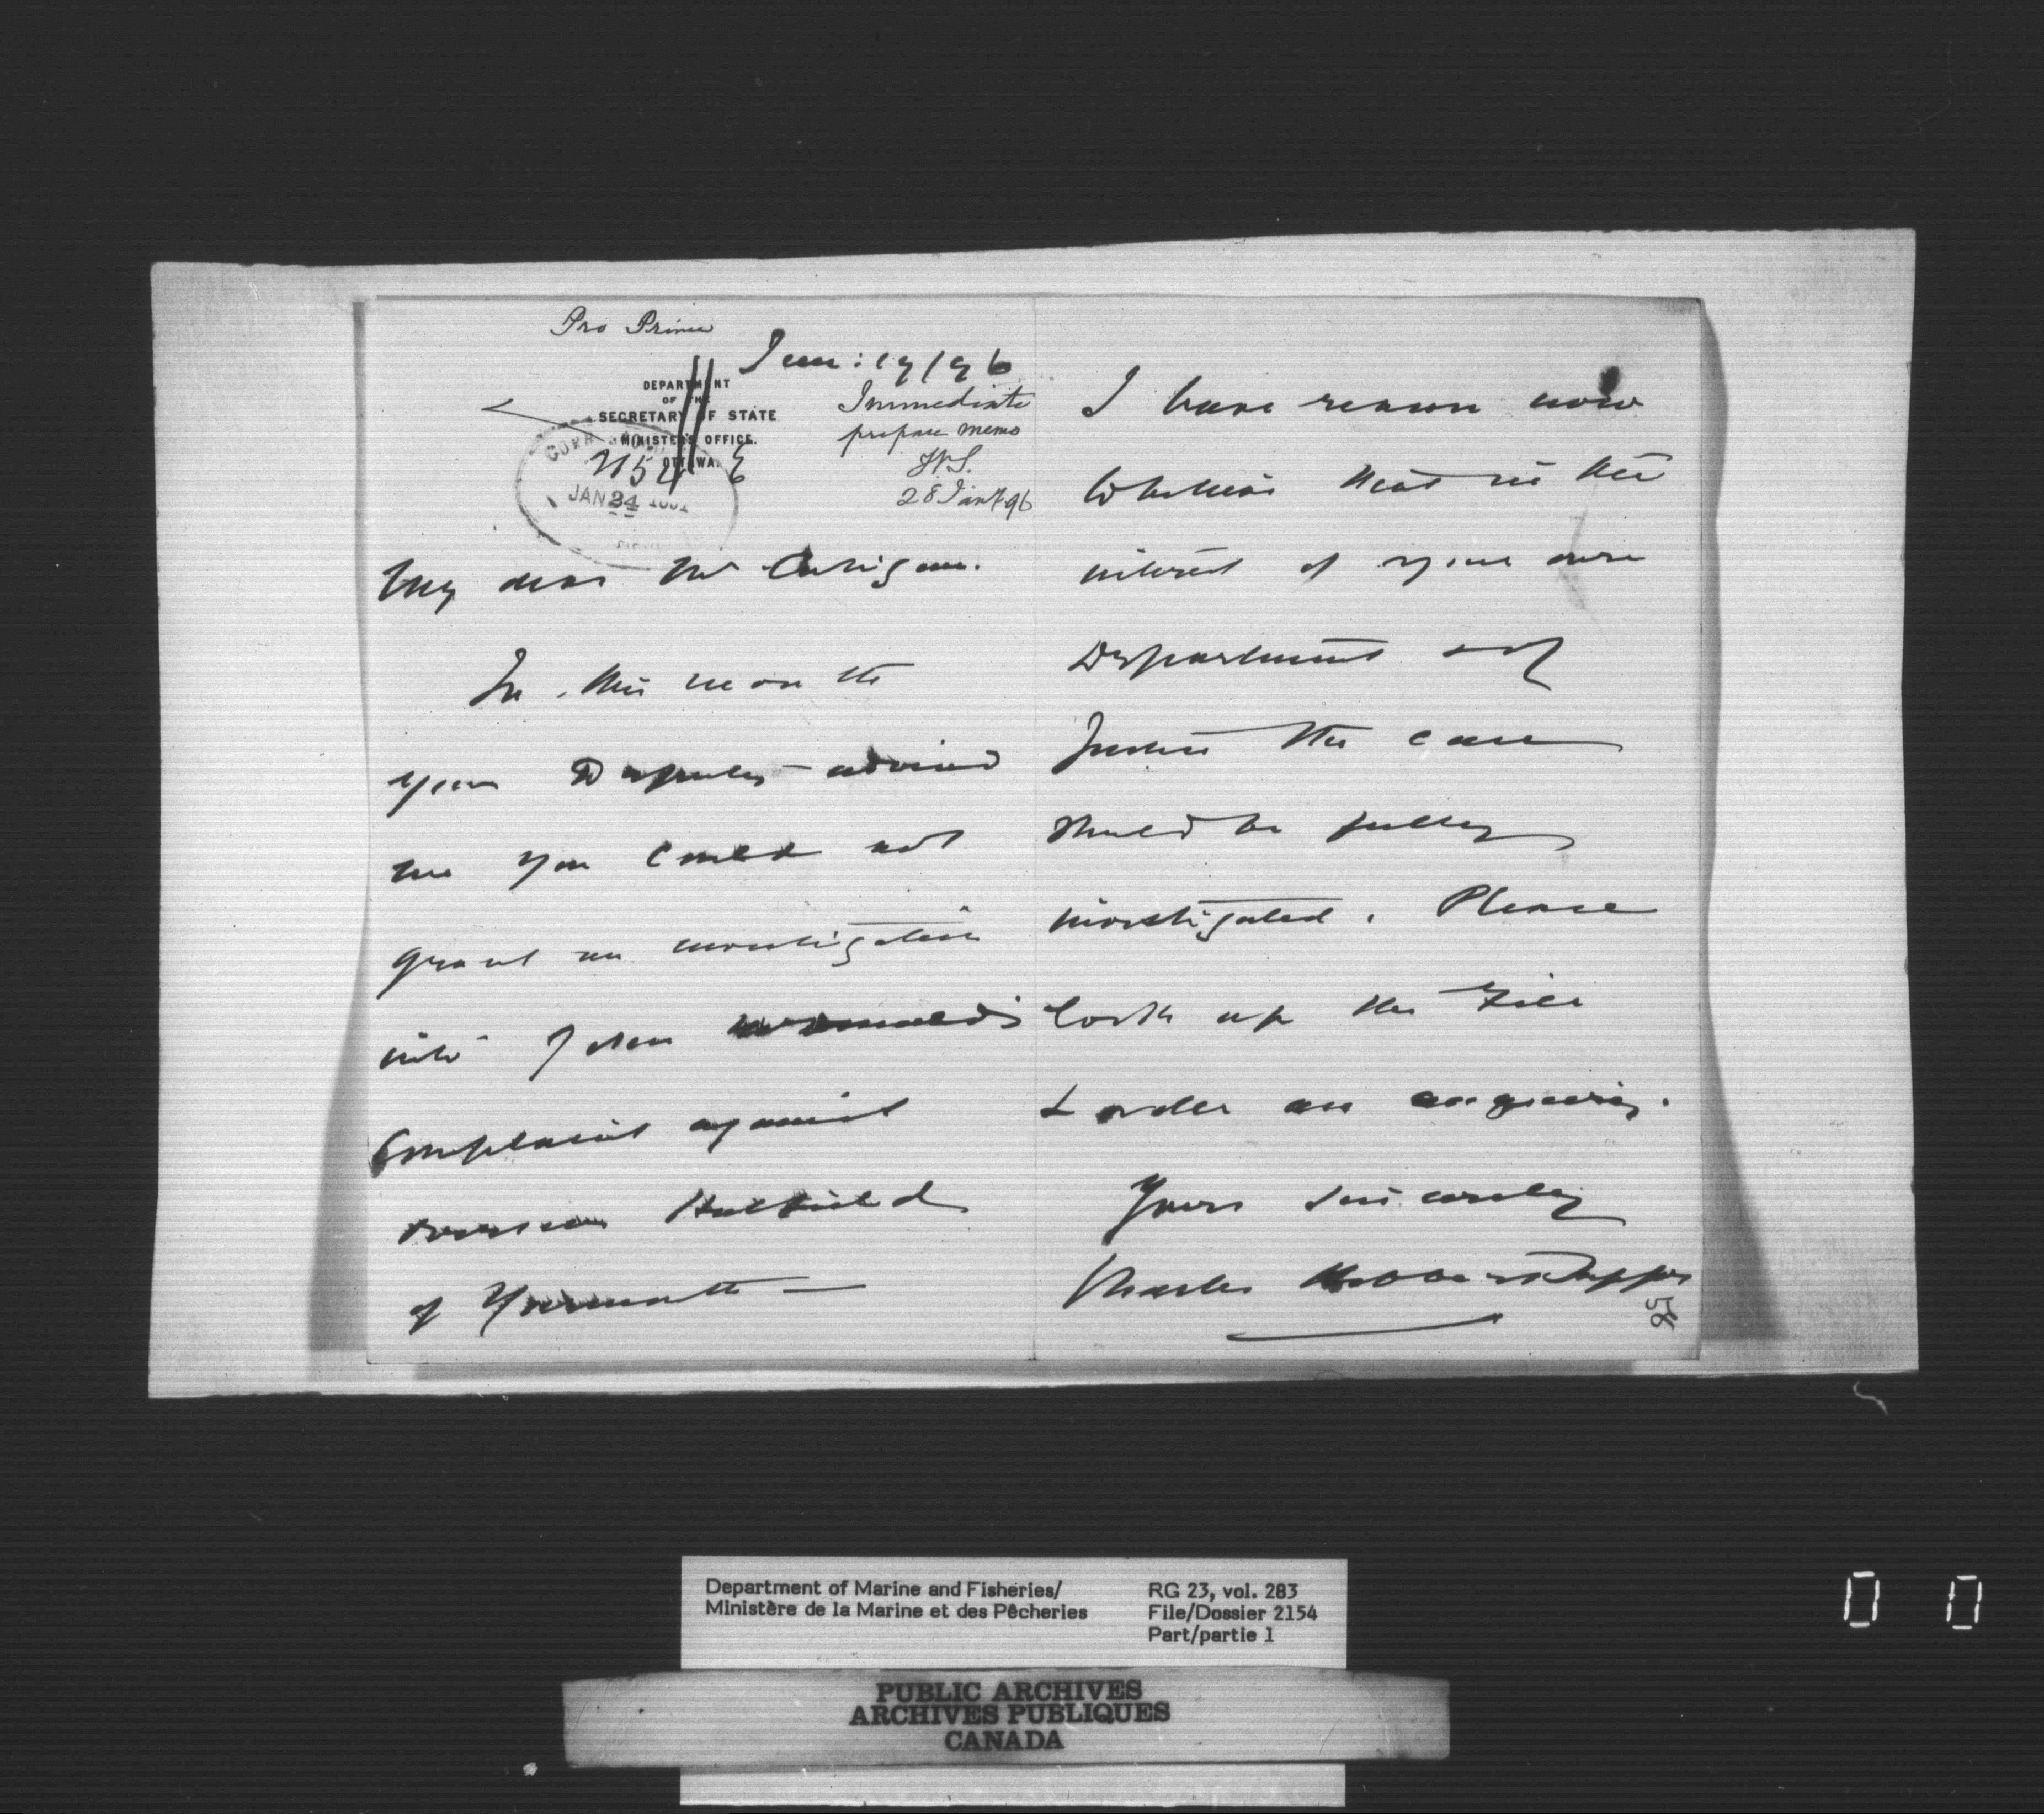 Pro Prince
Jan: 19/96
DEPARTMENT
OF THE
SECRETARY OF STATE
MINISTER'S OFFICE.
OTTAWA.
Immediate
prepare memo
28 Jany 96
2154
JAN 24
My dear Mr Costigan.
In this month
your Deputy advised
me you could not
grant an investigation
into John
Complaint against
Overseer Hatfield
of Yarmouth —
I have reason now
to believe that in the
interest of your own
Department & of
Justice the case
should be fully
investigated. Please
look up the File
& order an enquiry.
Yours sincerely
Charles Hibbert Tupper
58
Department of Marine and Fisheries/
Ministère de la Marine et des Pêcheries
RG 23, vol. 283
File/Dossier 2154
Part/partie 1
PUBLIC ARCHIVES
ARCHIVES PUBLIQUES
CANADA
0 0